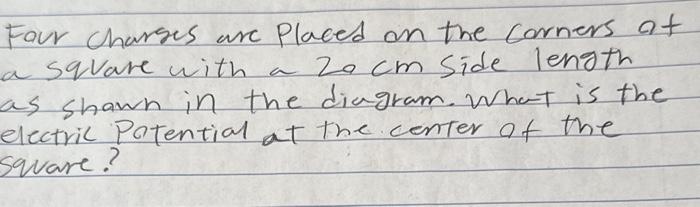 Four charges are Placed on the corners of
a square with a 20 cm side length
as shown in the diagram. What is the
electric Potential at the center of the
square?